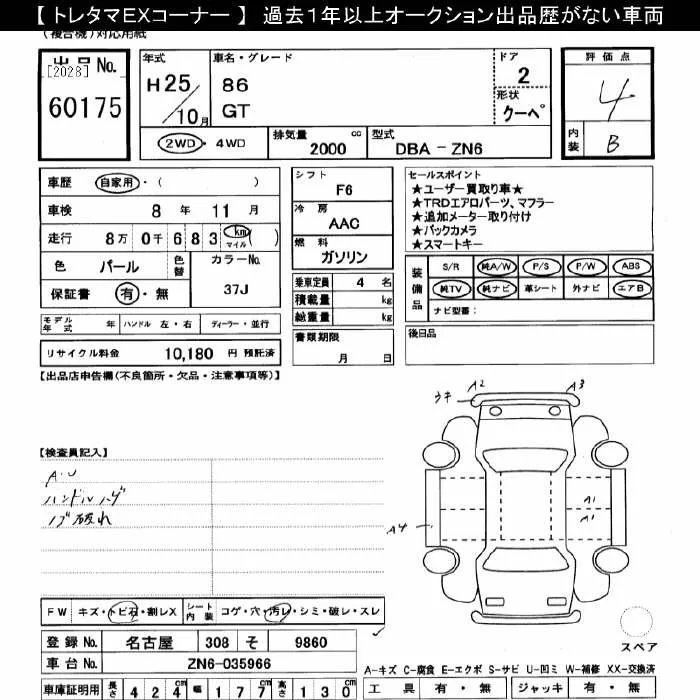 【 トレタマEXコーナー 】 過去1年以上オークション出品歴がない車両
(複合機)対応用紙
出品No.
[2028]
60175
年式
H25/10月
車名・グレード
86
GT
ドア
2
形状
クーペ
評価点
4
内装
B
2WD・4WD
排気量 cc
2000
型式
DBA-ZN6
車歴 自家用・( )
車検 8 年 11 月
走行 8万 0千 6 8 3 km マイル ( )
色 パール 色替 カラーNo.
37J
保証書 有・無
シフト
F6
冷房
AAC
燃料
ガソリン
乗車定員 4 名
積載量 kg
総重量 kg
セールスポイント
★ユーザー買取り車★
★TRDエアロパーツ、マフラー
★追加メーター取り付け
★バックカメラ
★スマートキー
装備品
S/R 純A/W P/S P/W ABS
純TV 純ナビ 革シート 外ナビ エアB
ナビ型番:
モデル年式 年 ハンドル 左・右 ディーラー・並行
リサイクル料金 10,180 円 預託済
書類期限
月 日
後日品
【出品店申告欄(不良箇所・欠品・注意事項等)】
【検査員記入】
A・U
ハンドルハゲ
ノブ破れ
ウキ A2 A3
A4
A1
A1
FW キズ・トビ石・割レX シート内装 コゲ・穴・汚レ・シミ・破レ・スレ
スペア
登録No. 名古屋 308 そ 9860
車台No. ZN6-035966
車庫証明用 長さ 424cm 幅 177cm 高さ 130cm
A-キズ C-腐食 E-エクボ S-サビ U-凹ミ W-補修 XX-交換済
工具 有・無 ジャッキ 有・無